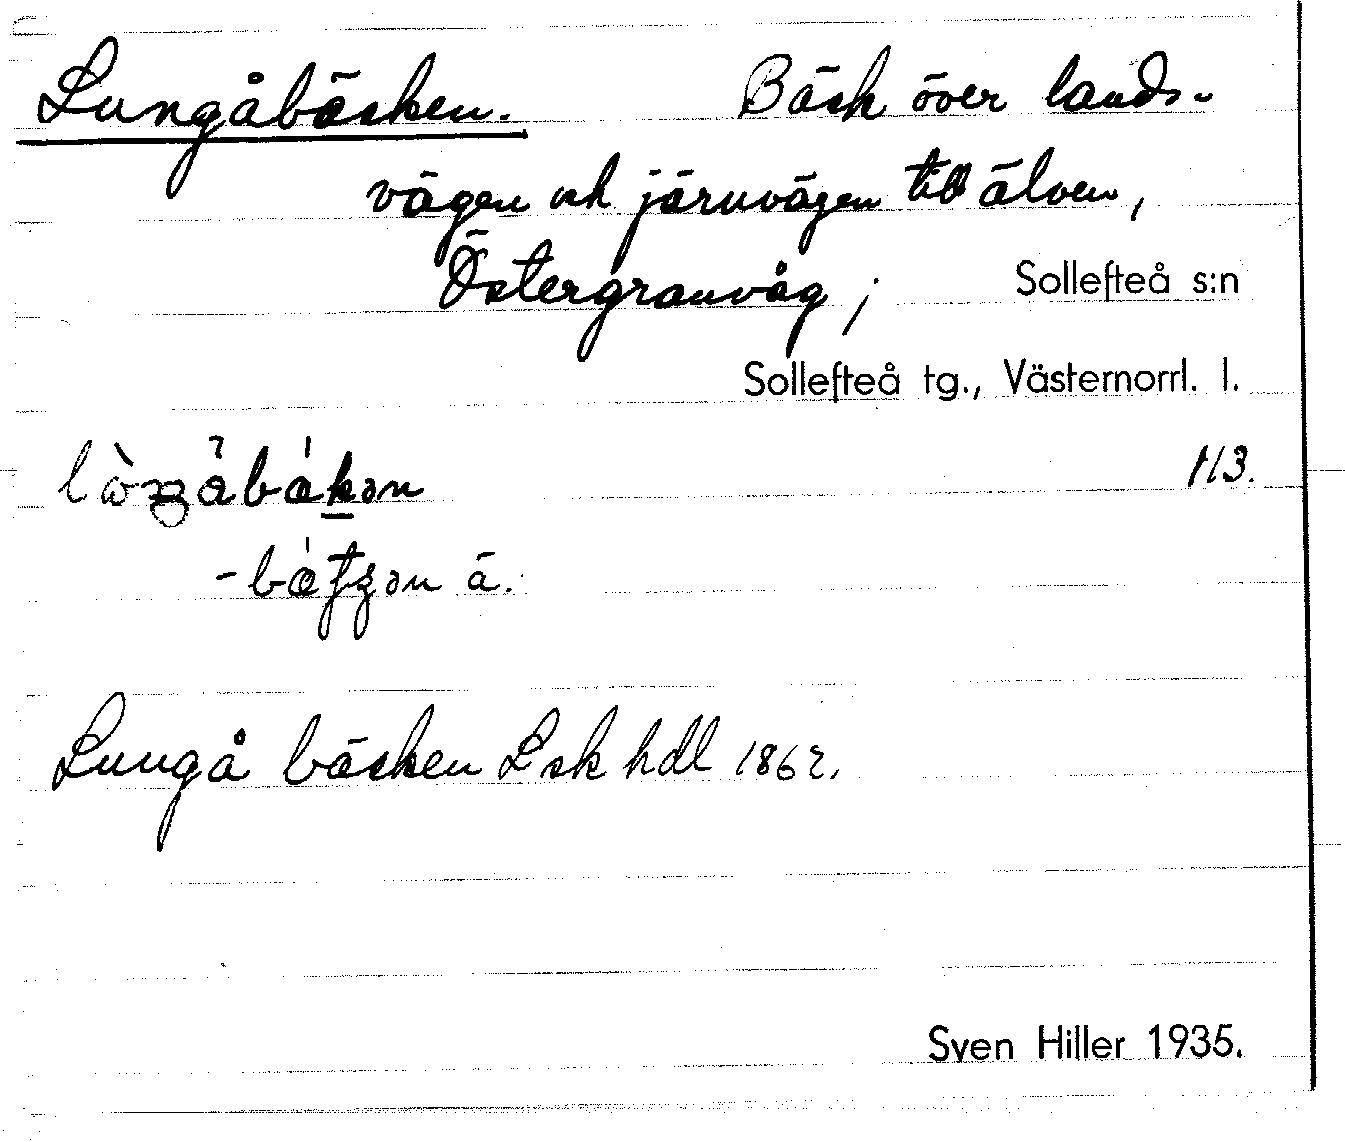 Lungåbäcken. Bäck över lands-
vägen och järnvägen till älven,
Östergranvåg; Sollefteå s:n
Sollefteå tg., Västernorrl. l.
H3.
ä.
Lungå bäcken Lsk hdl 1862.
Sven Hiller 1935.